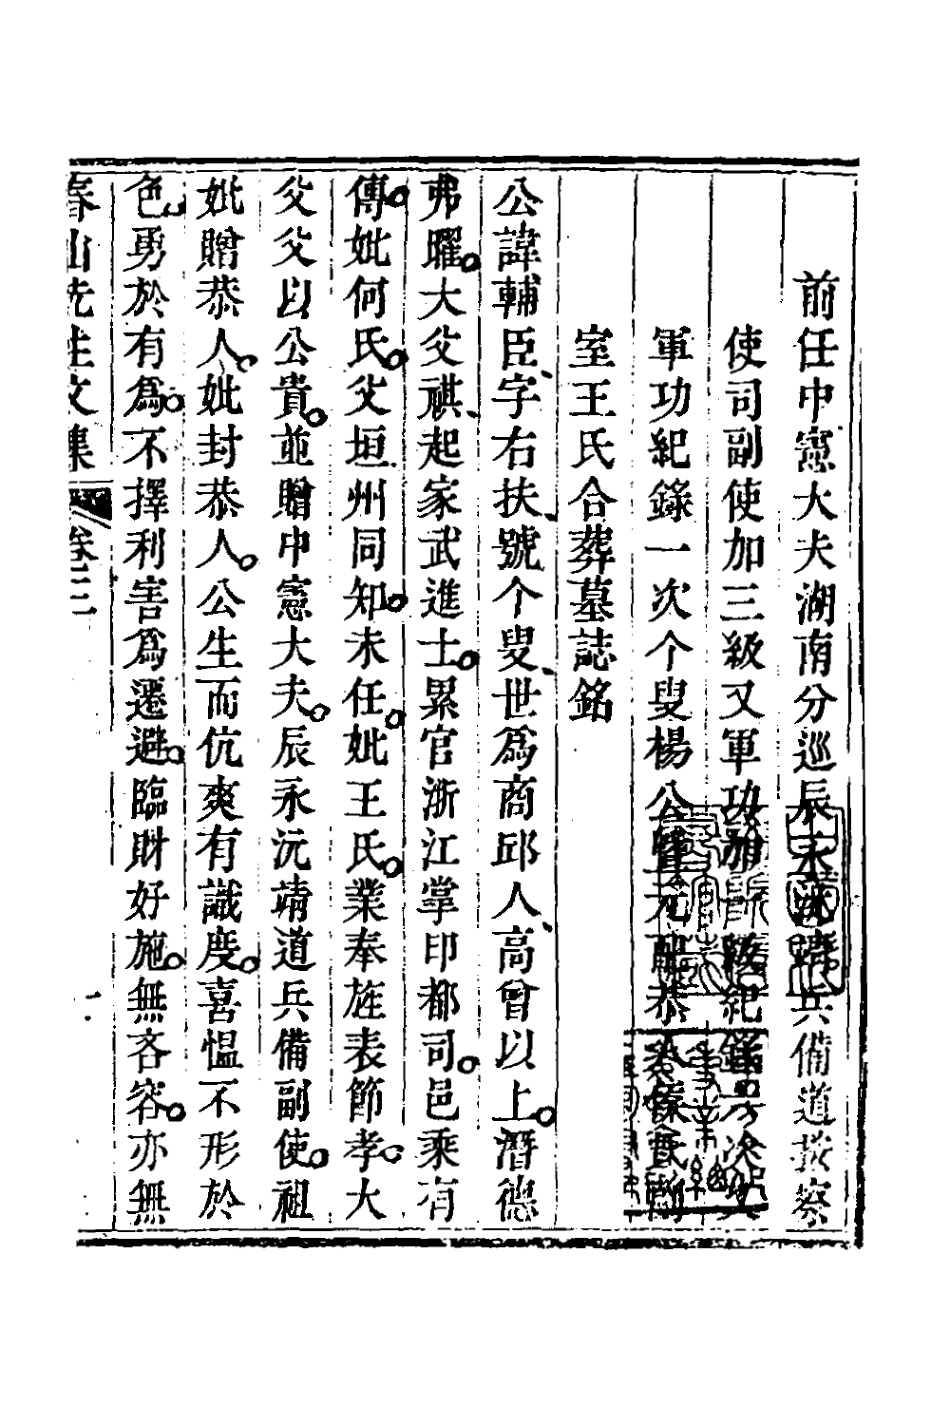 前任中憲大夫湖南分巡辰永沅靖兵備道按察
使司副使加三級又軍功加一級紀錄四次又
軍功紀錄一次个叟楊公暨元配恭人傢氏副
室王氏合葬墓誌銘
公諱輔臣字右扶號个叟世爲商邱人高曾以上潛德
弗曜大父祺起家武進士累官浙江掌印都司邑乘有
傳妣何氏父垣州同知未任妣王氏業奉旌表節孝大
父父以公貴並贈中憲大夫辰永沅靖道兵備副使祖
妣贈恭人妣封恭人公生而伉爽有識度喜慍不形於
色勇於有爲不擇利害爲遷避臨財好施無吝容亦無
春山先生文集 卷三 一